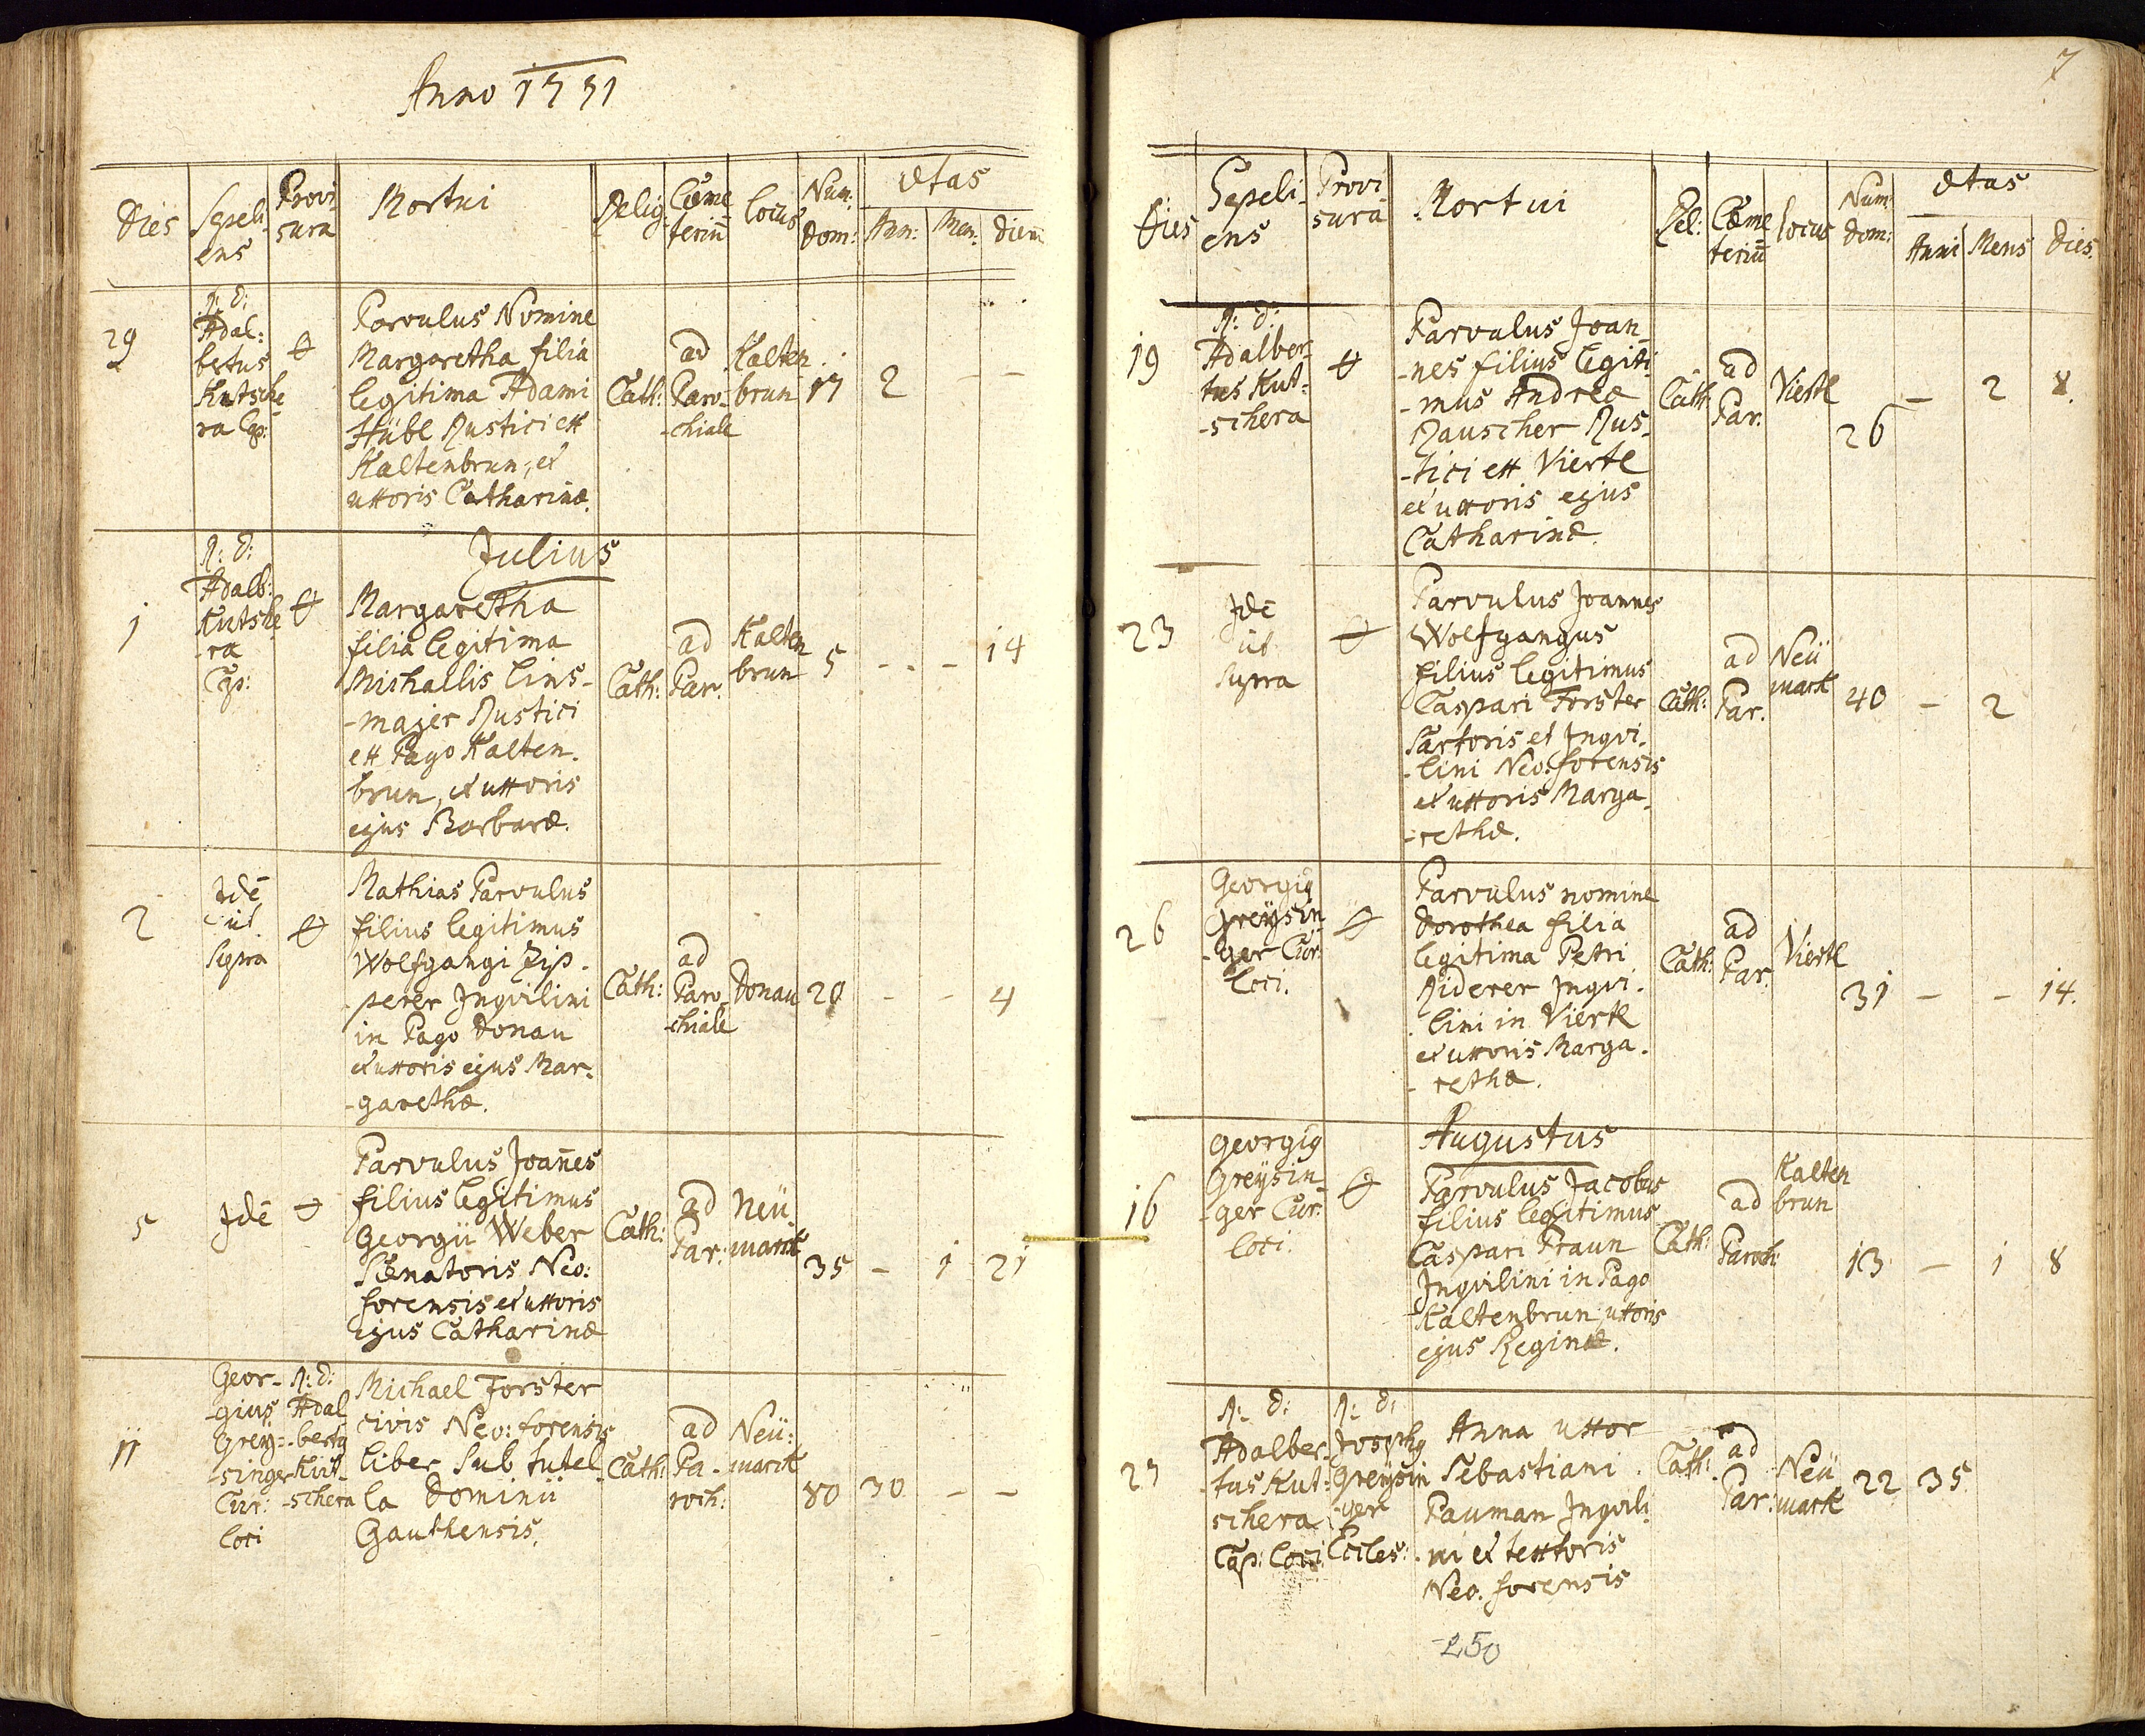 Anno 1771
Dies
Sepeli-
ens
Provi
sura
Mortui
Relig:
Cœme
teriū
locus
Num:
Dom:
Ætas
Ann:
Men:
Dierū
29
R: D:
Adal:
bertus
Kutsche
ra Cap:
Parvulus Nomine
Margaretha filia
legitima Adami
Hübl Rustici ex
Kaltenbrun, et
uxoris Catharinæ.
Cath:
ad
Paro-
-chiale
Kalten
brun
17
2
-
-
Julius
1
R: D:
Adalb:
Kutsche
-ra
Cap:
Margaretha
filia legitima
Michaelis Lins-
-majer Rustici
ex Pago Kalten.
brun, et uxoris
ejus Barbaræ.
Cath:
ad
Par.
Kalten
brun
5
-
-
14
2
Idē
ut
Supra
Mathias Parvulus
filius legitimus
Wolfgangi Zip-
-perer Inqvilini
in Pago Donau
et uxoris ejus Mar-
-garethæ.
Cath:
ad
Paro-
-chiale
Donau
20
-
-
4
5
Idē
Parvulus Joan̄es
filius legitimus
Georgii Weber
Senatoris Neo:
forensis et uxoris
ejus Catharinæ
Cath:
ad
Par:
Neü
marck
35
-
1
21
11
Geor-
-gius
Greÿ-
-singer
Cur:
loci
R: D:
Adal
-bertg
Kut-
-schera
Michael Forster
civis Neo: forensis
liber sub tutel-
la Dominii
Gauthensis.
Cath:
ad
Pa-
roch:
Neü:
marck
80
30
-
-
7
Dies
Sepeli-
ens
Provi
sura
Mortui
Rel:
Cœme
teriū
locus
Num
Dom:
Ætas
Anni
Mens
Dies.
19
R: D:
Adalber
tus Kut-
-schera
Parvulus Joan-
-nes filius legiti-
-mus Andreæ
Rauscher Rus-
-tici ex Viertl
et uxoris ejus
Catharinæ.
Cath.
ad
Par.
Viertl
26
-
2
8.
23
Idē
ut
Supra
Parvulus Joannes
Wolfgangus
filius legitimus
Caspari Forster
Sartoris et Inqvi-
-lini Neo: forensis
et uxoris Marga-
-rethæ.
Cath:
ad
Par.
Neü
marck
40
-
2
26
Georgig
Greÿsin-
-ger Cur:
loci.
Parvulus nomine
Dorothea filia
legitima Petri
Riderer Inqvi-
lini in Viertl
et uxoris Marga-
-rethæ.
Cath:
ad
Par.
Viertl
31
-
-
14.
Augustus
16
Georgig
Greÿsin-
-ger Cur:
loci.
Parvulus Jacobus
filius legitimus
Caspari Praun
Inqvilini in Pago
Kaltenbrun, uxoris
ejus Reginæ.
Cath:
ad
Paroch:
Kalten
brun
13
-
1
8
27
R: D:
Adalber-
-tus Kut-
schera
Cap: loci
R: D:
Josephg
Greÿsin
-ger
Eccles:
Anna uxor
Sebastiani
Pauman Inqvili-
ni et textoris
Neo. forensis
Cath:
ad
Par:
Neü
mark
22
35
250